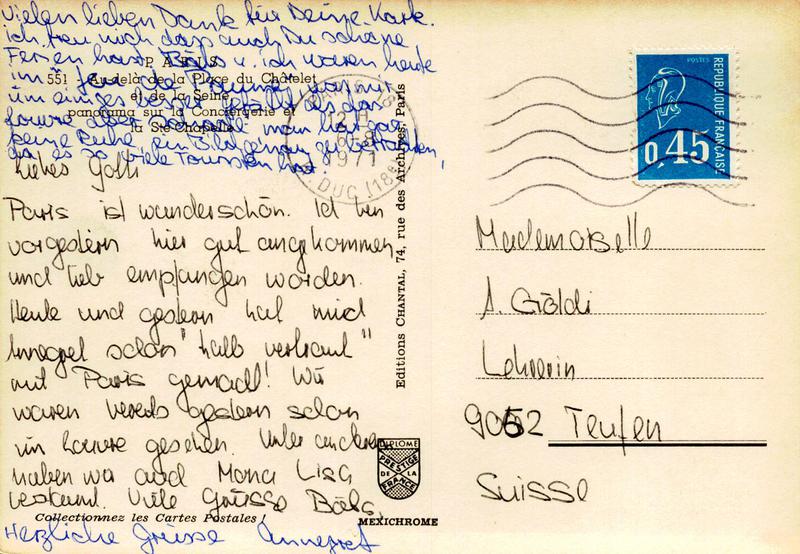 Vielen lieben Dank für Deine Karte.
Ich freu mich dass auch Du schöne
Ferien hast. Bäbs u. ich waren heute
im Jeu de Paume, was mir
um einiges besser gefällt als das
Louvre aber man hat gar
keine Ruhe ein Bild genau zu betrachten,
da es so viele Touristen hat.
PARIS
551 - Au delà de la Place du Châtelet
et de la Seine,
panorama sur la Conciergerie et
la Ste Chapelle
Liebes Gotti
Paris ist wunderschön. Ich bin
vorgestern hier gut angekommen
und lieb empfangen worden.
Heute und gestern hat mich
Annegret schon "halb vertraut"
mit Paris gemacht! Wir
waren bereits gestern schon
im Louvre gesehen. Unter anderem
haben wir auch Mona Lisa
bestaunt. Viele Grüsse Bäbs
Herzliche Grüsse Annegret
Collectionnez les Cartes Postales !
Editions CHANTAL, 74, rue des Archives, Paris
DIPLOME
PRESTIGE
DE LA
FRANCE
MEXICHROME
12 H
6-8
1977
DUC (18e)
POSTES
REPUBLIQUE FRANÇAISE
0,45
Mademoiselle
A. Göldi
Lehrerin
9052 Teufen
Suisse